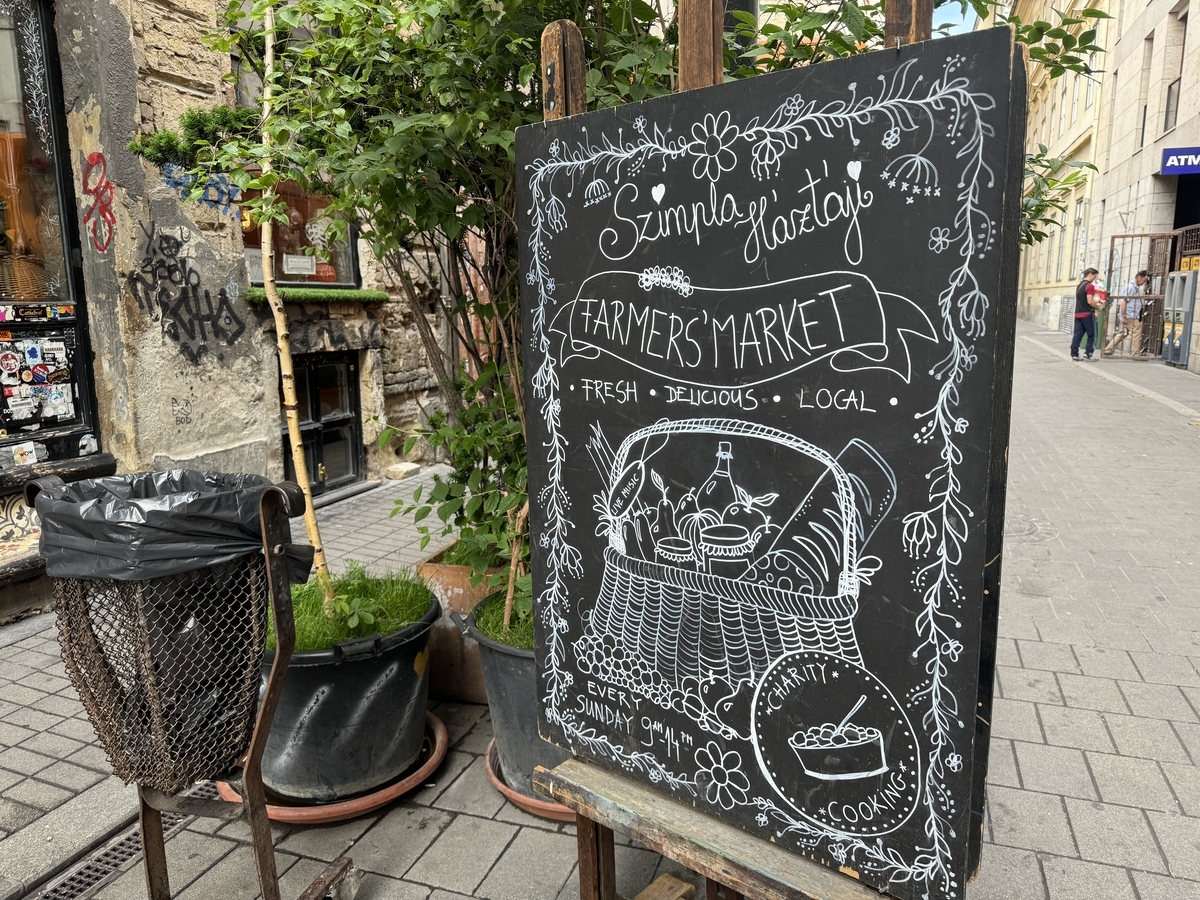 Szimpla Háztáji
FARMERS' MARKET
• FRESH • DELICIOUS • LOCAL •
LIVE MUSIC
EVERY
SUNDAY 9AM 14PM
CHARITY
*COOKING*
ATM